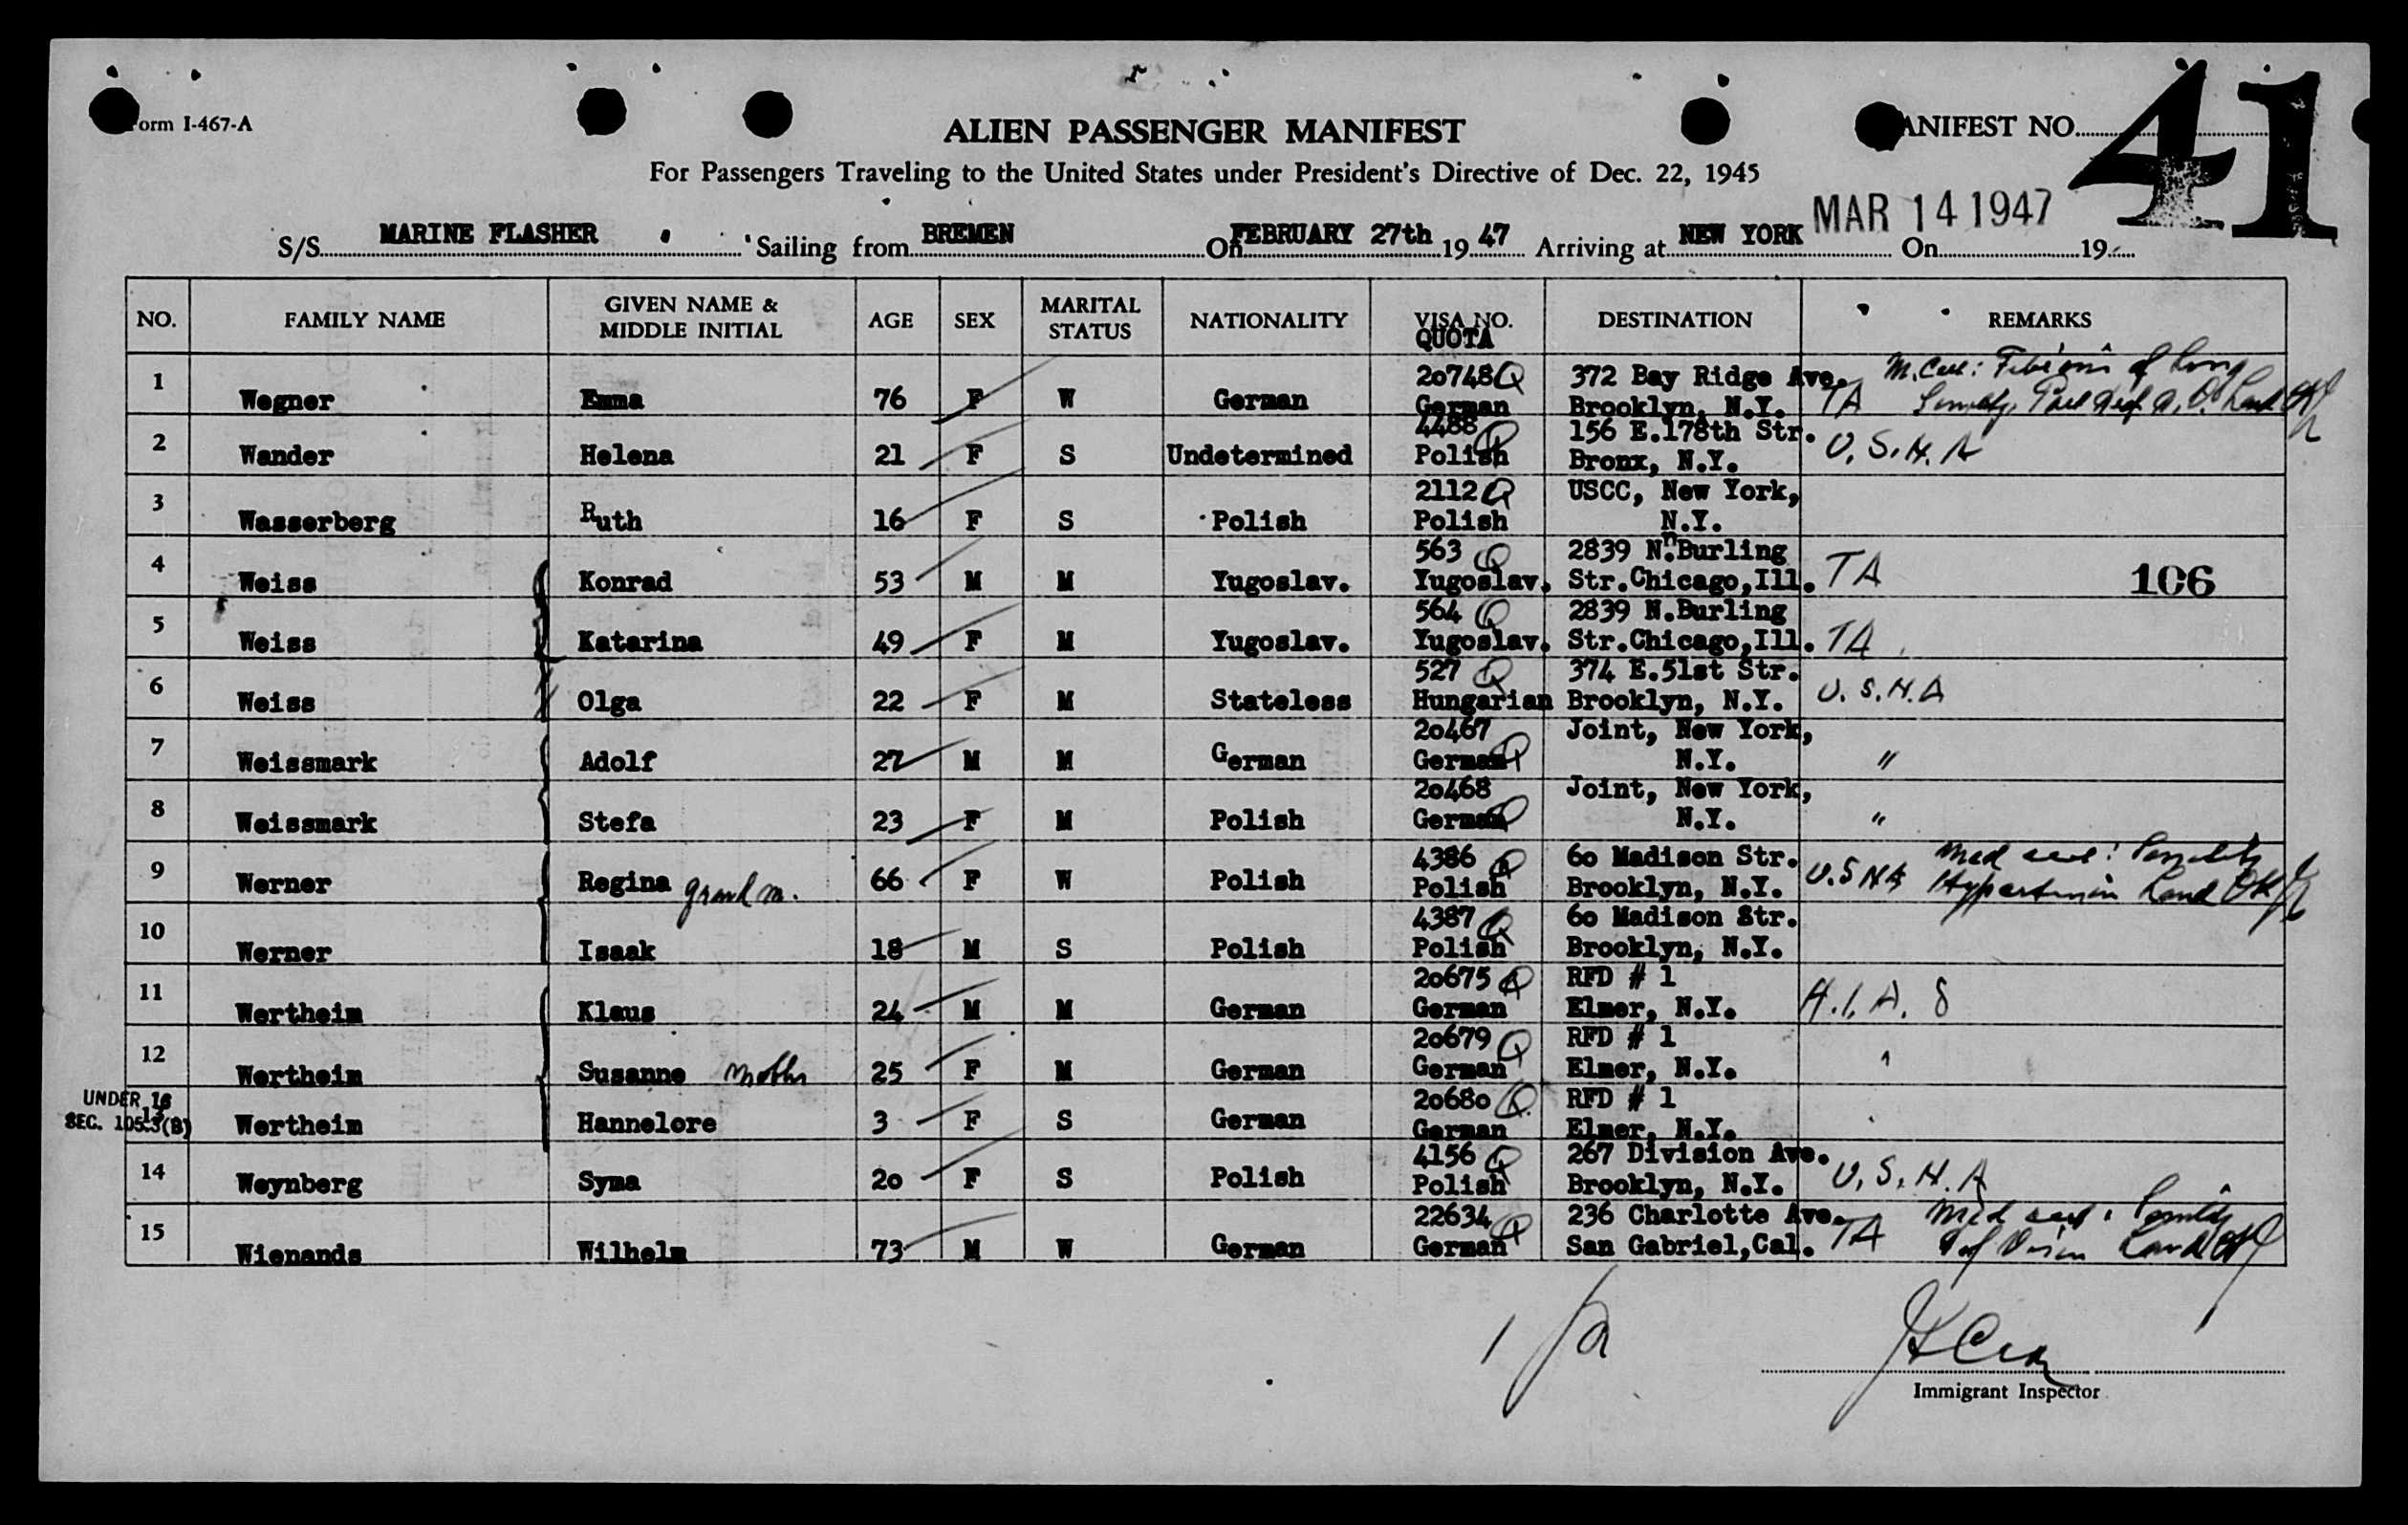 Form I-467-A
ALIEN PASSENGER MANIFEST
MANIFEST NO. 41
For Passengers Traveling to the United States under President's Directive of Dec. 22, 1945
S/S MARINE FLASHER Sailing from BREMEN On FEBRUARY 27th 19 47 Arriving at NEW YORK On MAR 14 1947 19
NO. FAMILY NAME GIVEN NAME & MIDDLE INITIAL AGE SEX MARITAL STATUS NATIONALITY VISA NO. QUOTA DESTINATION REMARKS
1 Wegner Emma 76 F W German 20748 Q German 372 Bay Ridge Ave. Brooklyn, N.Y. TA
2 Wander Helena 21 F S Undetermined 4488 Q Polish 156 E.178th Str. Bronx, N.Y. U.S.N.A
3 Wasserberg Ruth 16 F S Polish 2112 Q Polish USCC, New York, N.Y.
4 Weiss Konrad 53 M M Yugoslav. 563 Q Yugoslav. 2839 N.Burling Str.Chicago,Ill. TA 106
5 Weiss Katarina 49 F M Yugoslav. 564 Q Yugoslav. 2839 N.Burling Str.Chicago,Ill. TA
6 Weiss Olga 22 F M Stateless 527 Q Hungarian 374 E.51st Str. Brooklyn, N.Y. U.S.N.A
7 Weissmark Adolf 27 M M German 20467 German Q Joint, New York, N.Y. "
8 Weissmark Stefa 23 F M Polish 20468 German Q Joint, New York, N.Y. "
9 Werner Regina grand m. 66 F W Polish 4386 Q Polish 60 Madison Str. Brooklyn, N.Y. U.S.N.A
10 Werner Isaak 18 M S Polish 4387 Q Polish 60 Madison Str. Brooklyn, N.Y.
11 Wertheim Klaus 24 M M German 20675 Q German RFD # 1 Elmer, N.Y. H.I.A.S
12 Wertheim Susanne mother 25 F M German 20679 Q German RFD # 1 Elmer, N.Y. "
UNDER 16 SEC. 105.3(B)
13 Wertheim Hannelore 3 F S German 20680 Q German RFD # 1 Elmer, N.Y.
14 Weynberg Syma 20 F S Polish 4156 Q Polish 267 Division Ave. Brooklyn, N.Y. U.S.N.A
15 Wienands Wilhelm 73 M W German 22634 Q German 236 Charlotte Ave. San Gabriel,Cal. TA
Immigrant Inspector